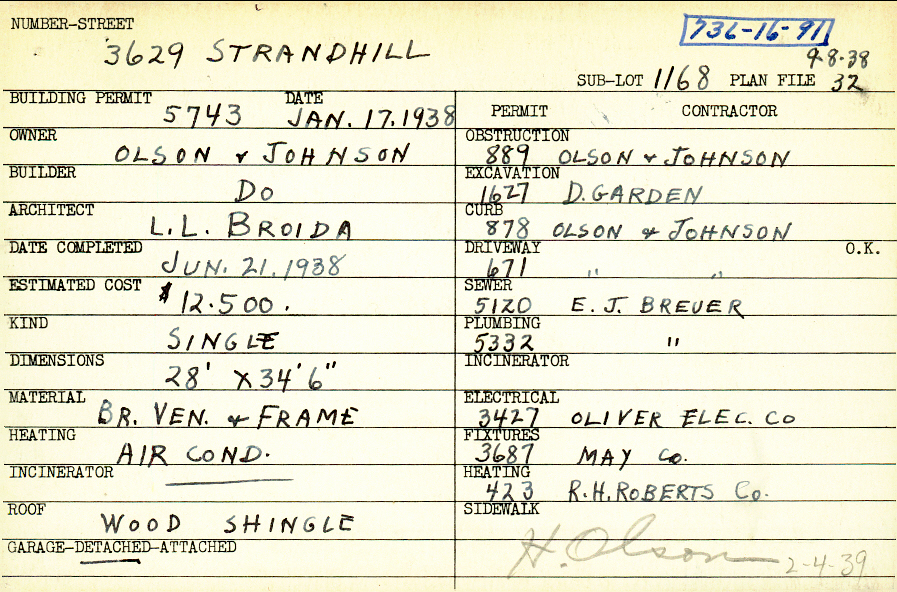 NUMBER-STREET
3629 STRANDHILL
736-16-91
9-8-38
SUB-LOT 1168 PLAN FILE 32
BUILDING PERMIT 5743 DATE JAN. 17. 1938
OWNER
OLSON & JOHNSON
BUILDER
DO
ARCHITECT
L.L. BROIDA
DATE COMPLETED
JUN. 21. 1938
ESTIMATED COST
$12.500.
KIND
SINGLE
DIMENSIONS
28' X 34' 6"
MATERIAL
BR. VEN. & FRAME
HEATING
AIR COND.
INCINERATOR
ROOF
WOOD SHINGLE
GARAGE-DETACHED-ATTACHED
PERMIT CONTRACTOR
OBSTRUCTION
889 OLSON & JOHNSON
EXCAVATION
1627 D. GARDEN
CURB
878 OLSON & JOHNSON
DRIVEWAY O.K.
671 " "
SEWER
5120 E. J. BREUER
PLUMBING
5332 "
INCINERATOR
ELECTRICAL
3427 OLIVER ELEC. CO
FIXTURES
3687 MAY CO.
HEATING
423 R.H. ROBERTS CO.
SIDEWALK
H. Olson 2-4-39